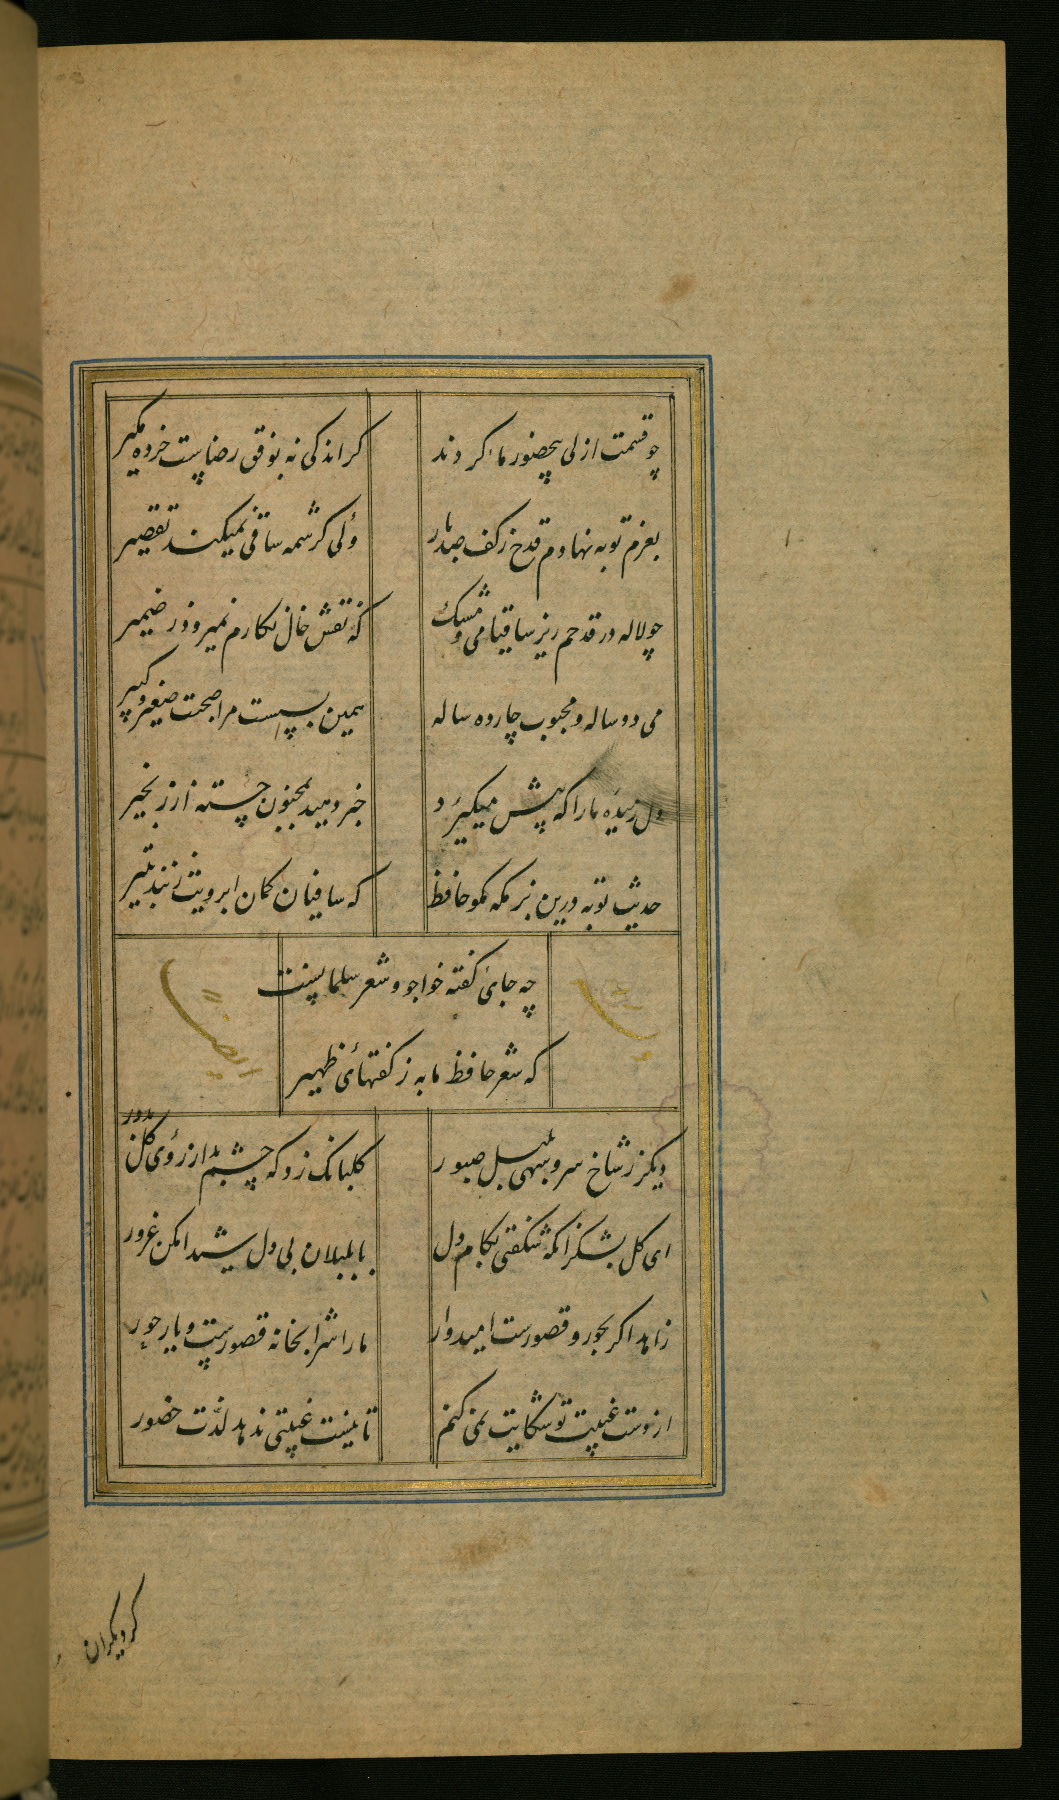 چو قسمت ازلی بیحضور ما کردند
کر اندکی نه بوفق رضاست خرده مکیر
بعزم توبه نهادم قدح ز کف صد بار
ولی کرشمه ساقی نمیکند تقصیر
چو لاله در قدحم ریز ساقیا می و مشک
که نقش خال نکارم نمیرود ز ضمیر
می دو ساله و محبوب چارده ساله
همین بس است مرا صحبت صغیر و کبیر
دل رمیده ما را که پیش میکیرد
خبر دهید بمجنون جسته از زنجیر
حدیث توبه درین بزمکه مکو حافظ
که ساقیان کمان ابرویت زنند بتیر
چه جای کفته خواجو و شعر سلمانست
که شعر حافظ ما به ز کفتهای ظهیر
ایضا
دیکر ز شاخ سرو سهی بلبل صبور
کلبانک زد که چشم بد از روی کل بدور
ای کل بشکر انکه شکفتی بکام دل
با بلبلان بی دل شیدا مکن غرور
زاهد اکر بحور و قصورست امیدوار
ما را شرابخانه قصورست و یار حور
از دست غیبت تو شکایت نمی کنم
تا نیست غیبتی ندهد لذت حضور
کر دیکران